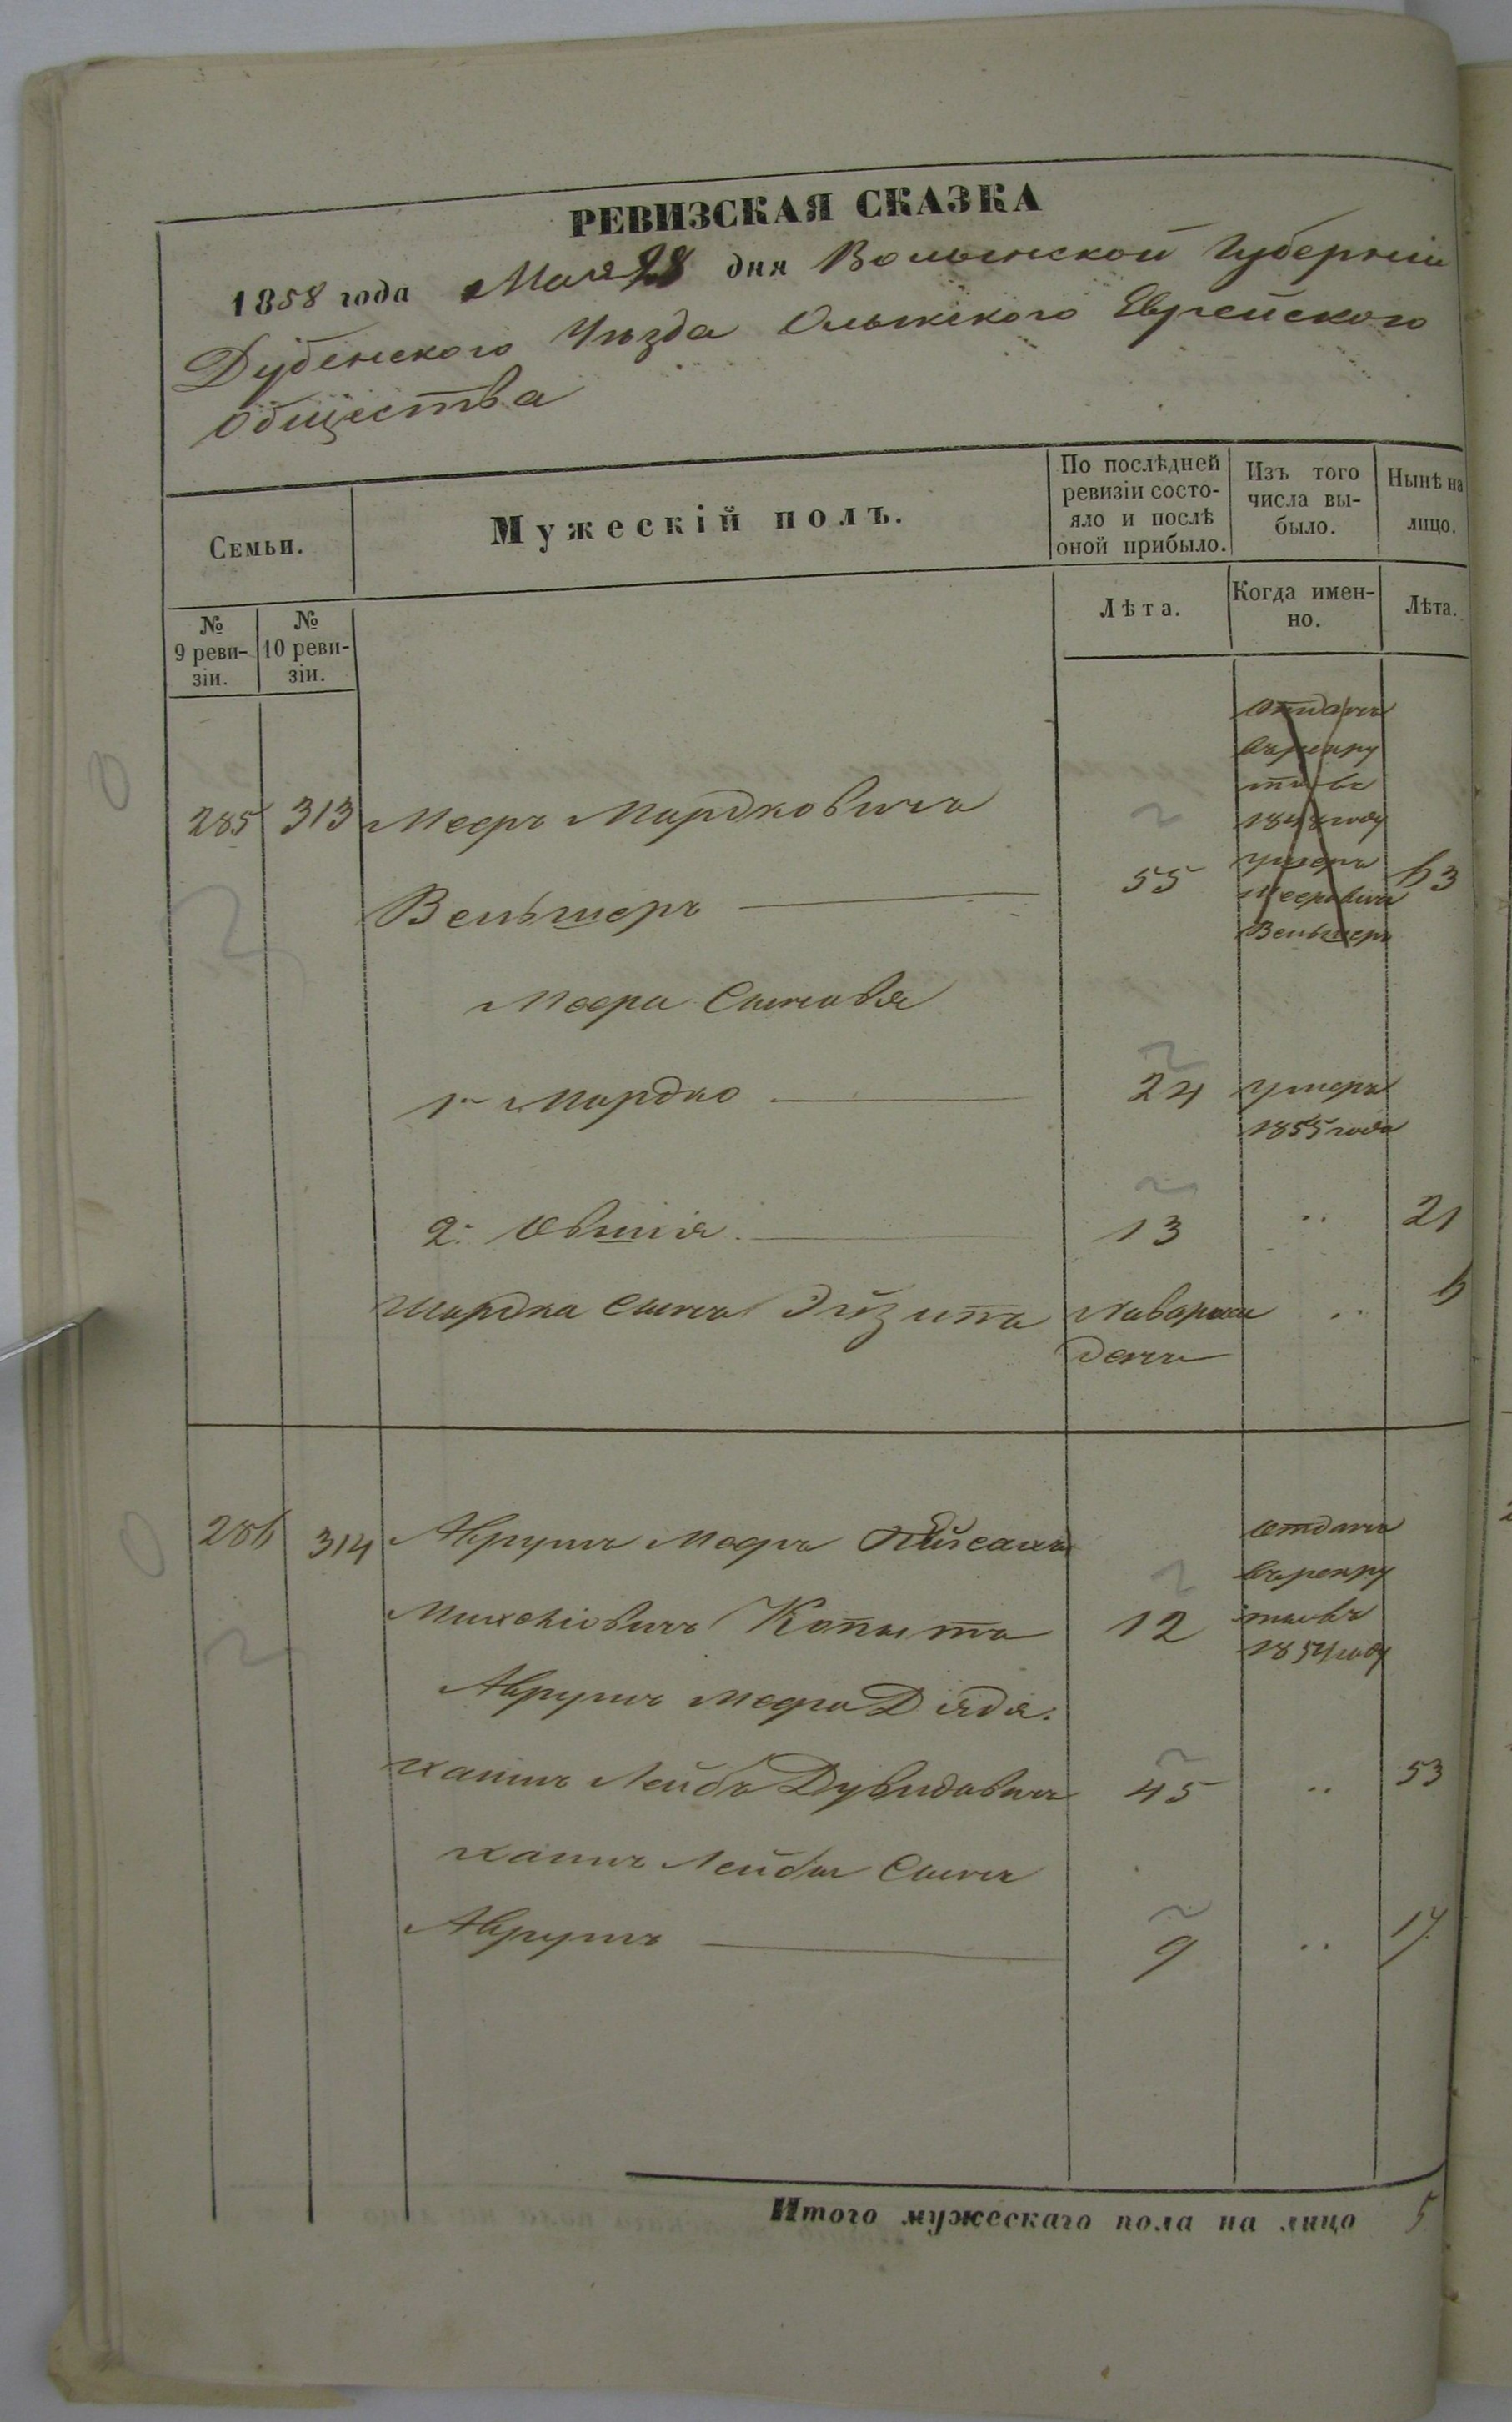 РЕВИЗСКАЯ СКАЗКА
1858 года Мая 28 дня Волынской Губерніи
Дубенского Уѣзда Олыкского Еврейского
Общества
Семьи.
Мужескій полъ.
По послѣдней ревизіи состояло и послѣ оной прибыло.
Изъ того числа выбыло.
Нынѣ на лицо.
№ 9 ревизіи.
№ 10 ревизіи.
Лѣта.
Когда именно.
Лѣта.
отданъ
въ рекру
ты въ
285 313 Мееръ Мардковичъ 1848 году
Вельшеръ 55 умеръ 63
Мееровичъ
Вельшеръ
Меера Сыновья
1й Мардко 24 умеръ
1855 года
2й Овшія 13 " 21
Мардка Сынъ Эйзикъ Новорож " 6
денъ
286 314 Аврумъ Мееръ отданъ
въ рекру
Копыта 12 ты въ
1854 году
Аврумъ Меера Дядя
Хаимъ Лейба Дувидовичъ 45 " 53
Хаимъ Лейбы Сынъ
Аврумъ 9 " 17
Итого мужескаго пола на лицо 5